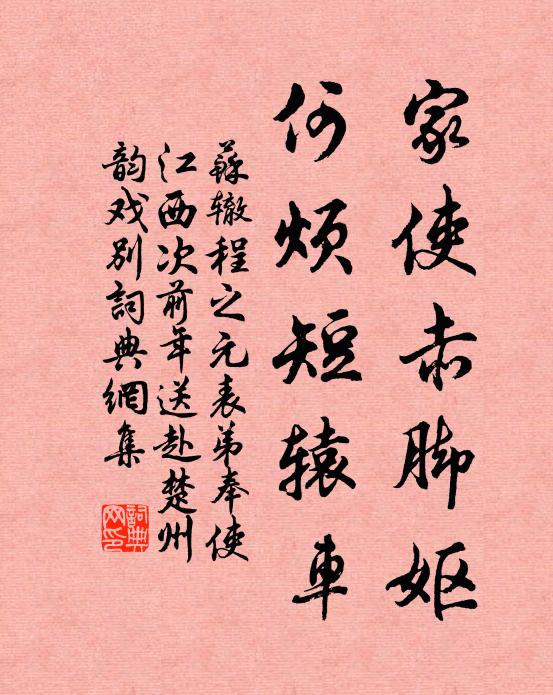 家使赤脚妪
何烦短辕車
蘇辙程之元表弟奉使
江西次前年送赴楚州
韵戏别詞典網集
詞典网印